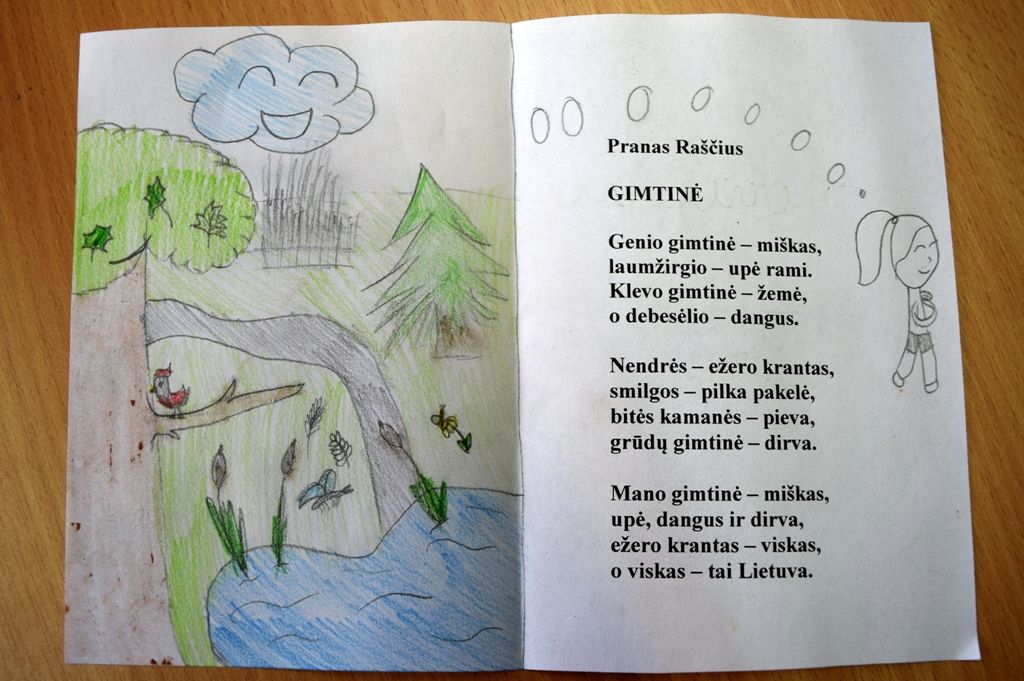 Pranas Raščius
GIMTINĖ
Genio gimtinė – miškas,
laumžirgio – upė rami.
Klevo gimtinė – žemė,
o debesėlio – dangus.
Nendrės – ežero krantas,
smilgos – pilka pakelė,
bitės kamanės – pieva,
grūdų gimtinė – dirva.
Mano gimtinė – miškas,
upė, dangus ir dirva,
ežero krantas – viskas,
o viskas – tai Lietuva.